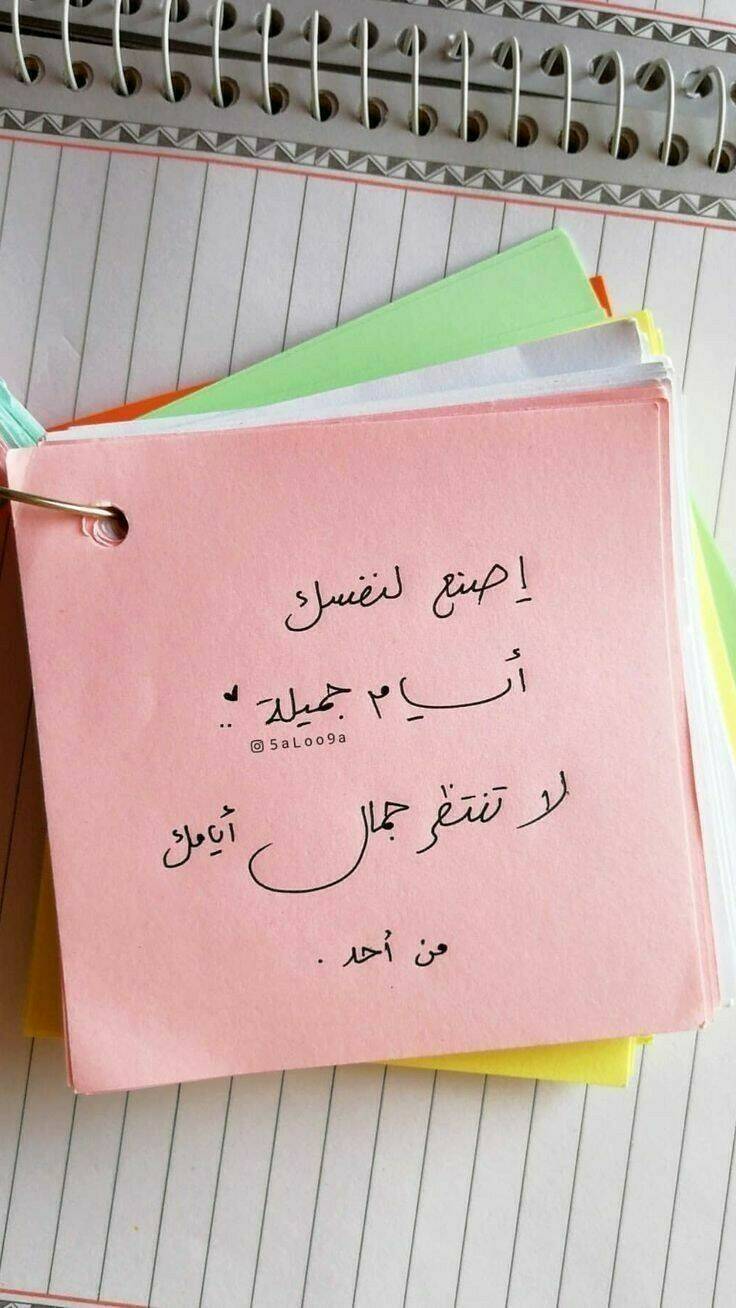 إصنع لنفسك
أيام جميلة ..♥
5aLoo9a
لا تنتظر جمال أيامك
من أحد .